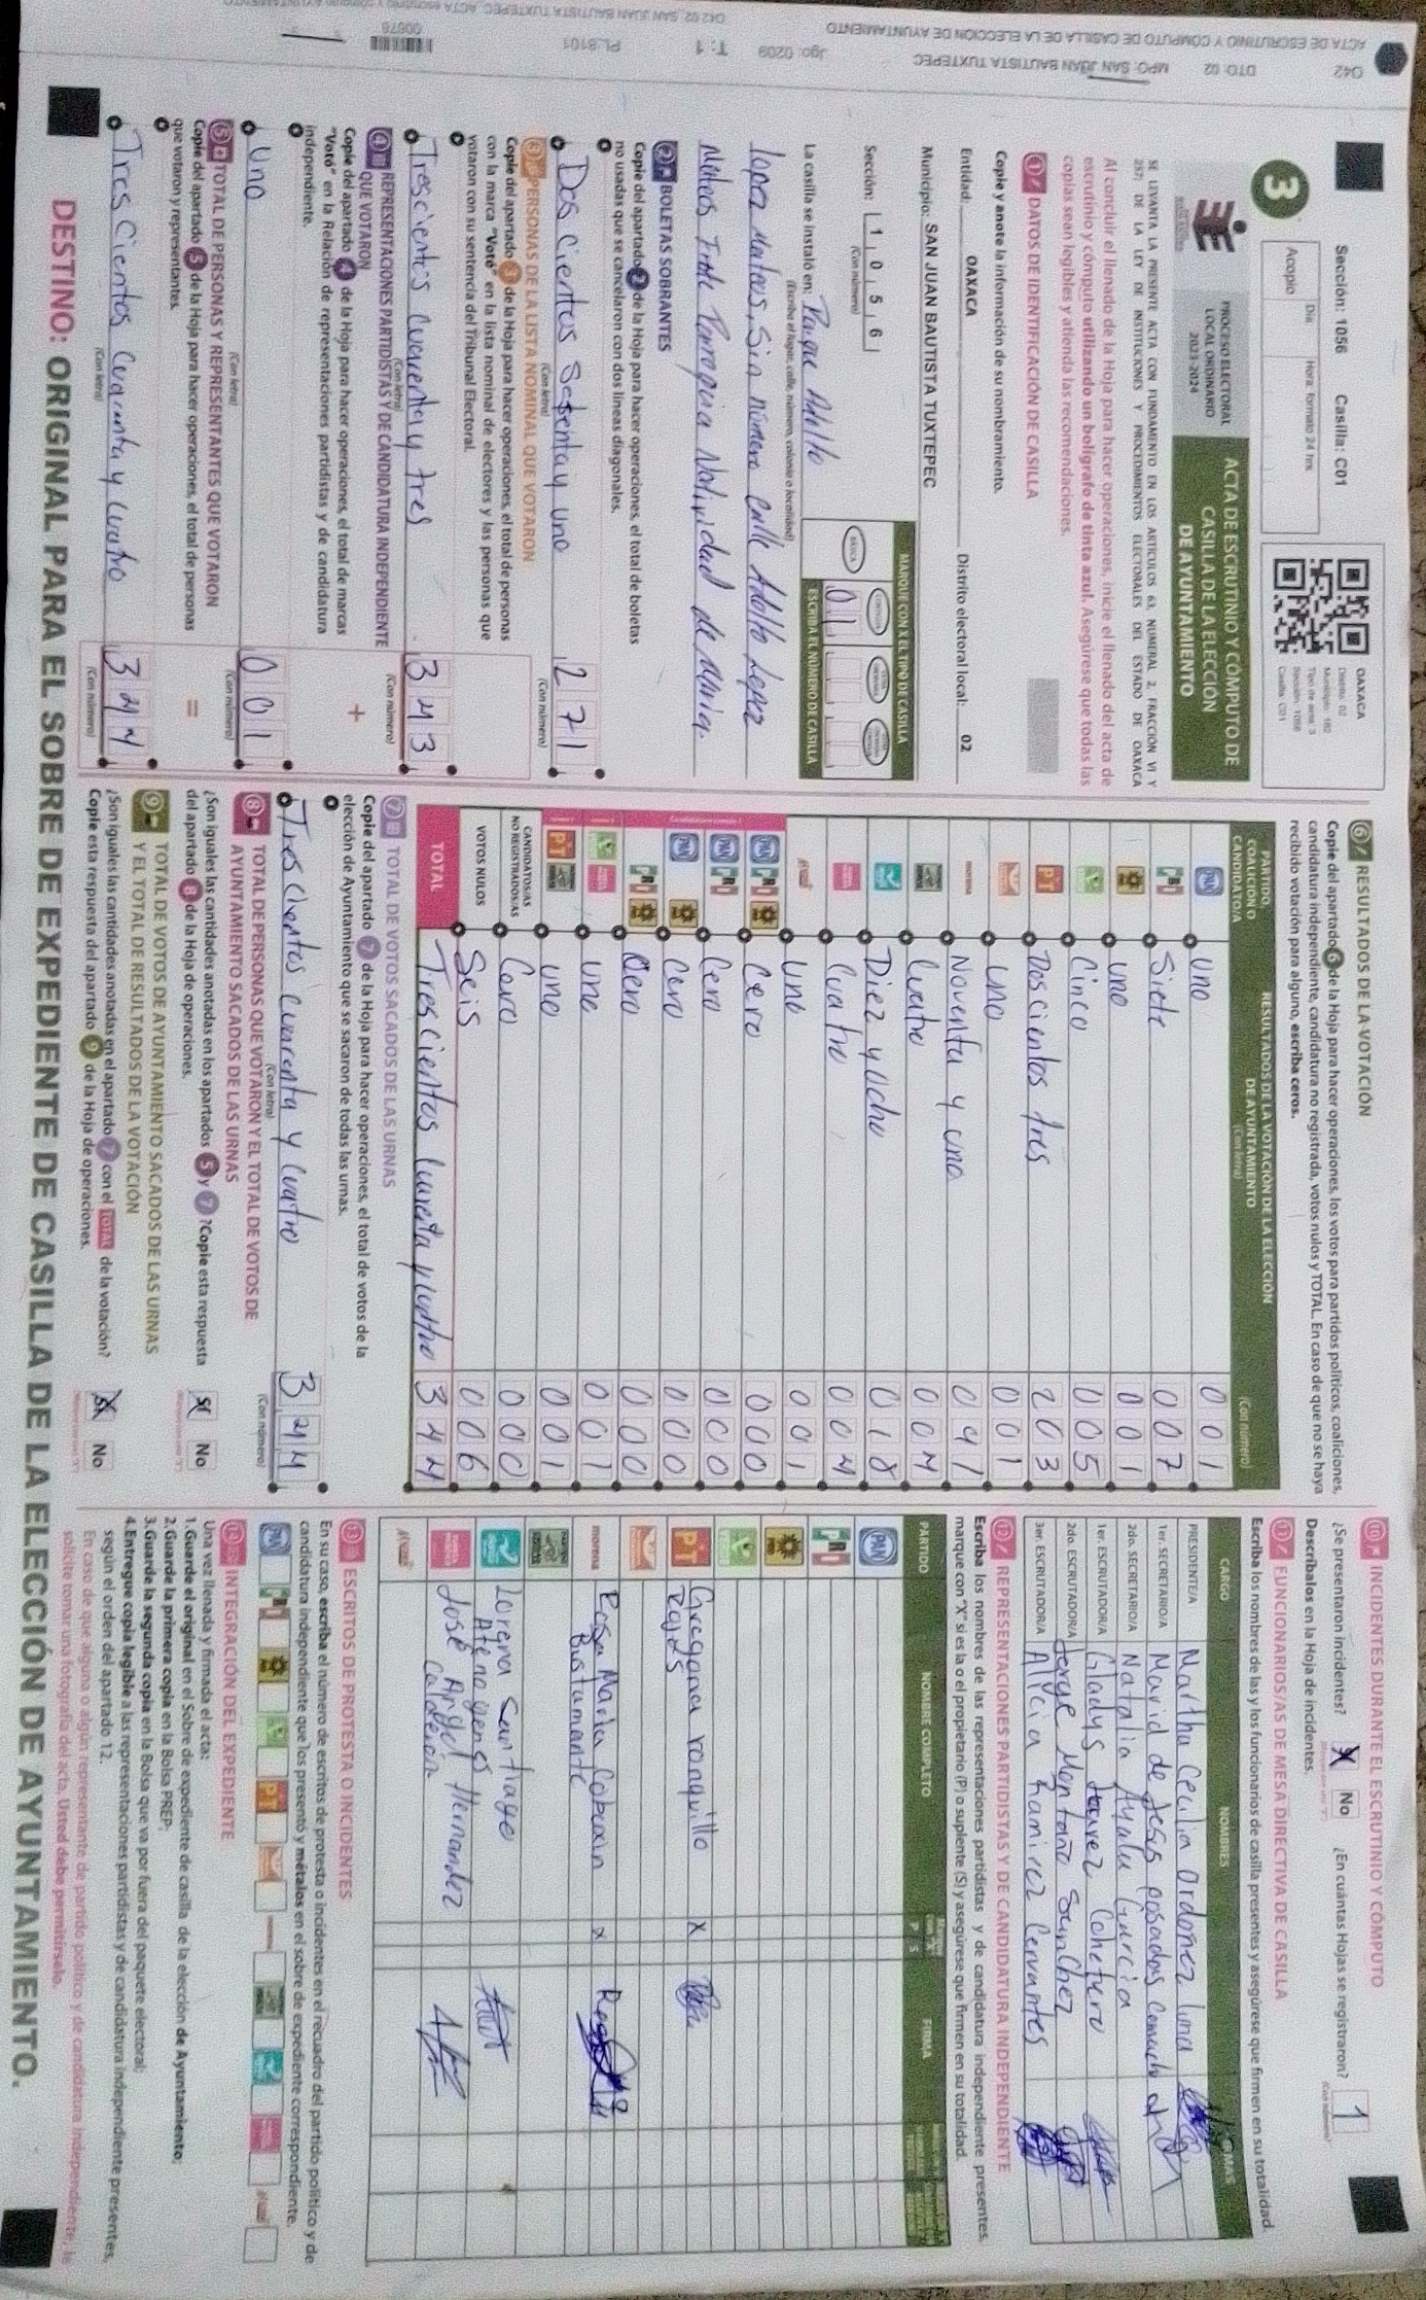 042 DTO: 02 MPO: SAN JUAN BAUTISTA TUXTEPEC Jgo: 0209 T: 1 PL8101 00878
ACTA DE ESCRUTINIO Y CÓMPUTO DE CASILLA DE LA ELECCIÓN DE AYUNTAMIENTO
Sección: 1056 Casilla: C01
Día Hora: formato 24 hrs.
Acopio
OAXACA
Distrito: 02
Tipo de acta: 3
Sección: 1056
Casilla: C01
3
PROCESO ELECTORAL
LOCAL ORDINARIO
2023-2024
ACTA DE ESCRUTINIO Y CÓMPUTO DE
CASILLA DE LA ELECCIÓN
DE AYUNTAMIENTO
SE LEVANTA LA PRESENTE ACTA CON FUNDAMENTO EN LOS ARTÍCULOS 63, NUMERAL 2, FRACCIÓN VI Y
257; DE LA LEY DE INSTITUCIONES Y PROCEDIMIENTOS ELECTORALES DEL ESTADO DE OAXACA
Al concluir el llenado de la Hoja para hacer operaciones, inicie el llenado del acta de
escrutinio y cómputo utilizando un bolígrafo de tinta azul. Asegúrese que todas las
copias sean legibles y atienda las recomendaciones.
1 DATOS DE IDENTIFICACIÓN DE CASILLA
Copie y anote la información de su nombramiento.
Entidad: OAXACA Distrito electoral local: 02
Municipio: SAN JUAN BAUTISTA TUXTEPEC
Sección: 1 0 5 6
(Con número)
MARQUE CON X EL TIPO DE CASILLA
BÁSICA
01
ESCRIBA EL NÚMERO DE CASILLA
La casilla se instaló en: Parque Adolfo
(Escriba el lugar, calle, número, colonia o localidad)
lopez Mateos, Sin número Calle Adolfo Lopez
Mateos Frete Parroquia Natividad de maria.
2 BOLETAS SOBRANTES
Copie del apartado 2 de la Hoja para hacer operaciones, el total de boletas
no usadas que se cancelaron con dos líneas diagonales.
Dos Cientos Setenta y uno 271
(Con letra) (Con número)
3 PERSONAS DE LA LISTA NOMINAL QUE VOTARON
Copie del apartado 3 de la Hoja para hacer operaciones, el total de personas
con la marca "Votó" en la lista nominal de electores y las personas que
votaron con su sentencia del Tribunal Electoral.
Trescientos Cuarenta y tres 343
(Con letra) (Con número)
4 REPRESENTACIONES PARTIDISTAS Y DE CANDIDATURA INDEPENDIENTE
QUE VOTARON
Copie del apartado 4 de la Hoja para hacer operaciones, el total de marcas
"Votó" en la Relación de representaciones partidistas y de candidatura
independiente.
+
Uno 001
(Con letra) (Con número)
5 TOTAL DE PERSONAS Y REPRESENTANTES QUE VOTARON
Copie del apartado 5 de la Hoja para hacer operaciones, el total de personas
que votaron y representantes.
=
Tres Cientos Cuarenta y Cuatro 344
(Con letra) (Con número)
6 RESULTADOS DE LA VOTACIÓN
Copie del apartado 6 de la Hoja para hacer operaciones, los votos para partidos políticos, coaliciones,
candidatura independiente, candidatura no registrada, votos nulos y TOTAL. En caso de que no se haya
recibido votación para alguno, escriba ceros.
PARTIDO, COALICIÓN O CANDIDATO/A
RESULTADOS DE LA VOTACIÓN DE LA ELECCIÓN DE AYUNTAMIENTO
(Con letra) (Con número)
PAN Uno 001
PRI Siete 007
uno 001
Cinco 005
PT Doscientos tres 203
uno 001
morena Noventa y uno 091
Cuatro 004
Diez y Ocho 018
Cuatro 004
Uno 001
PAN PRI Cero 000
PAN PRI Cero 000
PAN Cero 000
PRI Cero 000
Uno 001
PT uno 001
CANDIDATOS/AS NO REGISTRADOS/AS Cero 000
VOTOS NULOS Seis 006
TOTAL Trescientos Cuarenta y Cuatro 344
7 TOTAL DE VOTOS SACADOS DE LAS URNAS
Copie del apartado 7 de la Hoja para hacer operaciones, el total de votos de la
elección de Ayuntamiento que se sacaron de todas las urnas.
Tres Cientos Cuarenta y Cuatro 344
(Con letra) (Con número)
8 TOTAL DE PERSONAS QUE VOTARON Y EL TOTAL DE VOTOS DE
AYUNTAMIENTO SACADOS DE LAS URNAS
¿Son iguales las cantidades anotadas en los apartados 5 y 7? Copie esta respuesta
del apartado 8 de la Hoja de operaciones.
Sí No
9 TOTAL DE VOTOS DE AYUNTAMIENTO SACADOS DE LAS URNAS
Y EL TOTAL DE RESULTADOS DE LA VOTACIÓN
¿Son iguales las cantidades anotadas en el apartado 7 con el TOTAL de la votación?
Copie esta respuesta del apartado 9 de la Hoja de operaciones.
Sí No
10 INCIDENTES DURANTE EL ESCRUTINIO Y CÓMPUTO
¿Se presentaron incidentes? X No ¿En cuántas Hojas se registraron? 1
Descríbalos en la Hoja de incidentes.
11 FUNCIONARIOS/AS DE MESA DIRECTIVA DE CASILLA
Escriba los nombres de las y los funcionarios de casilla presentes y asegúrese que firmen en su totalidad.
CARGO NOMBRES FIRMAS
PRESIDENTE/A Martha Cecilia Ordoñez luna
1er. SECRETARIO/A Marid de Jesus posadas
2do. SECRETARIO/A Natalia Ayala Garcia
1er. ESCRUTADOR/A Gladys Juarez Cohetero
2do. ESCRUTADOR/A Jorge Montaño Sanchez
3er. ESCRUTADOR/A Alicia Ramirez Cervantes
12 REPRESENTACIONES PARTIDISTAS Y DE CANDIDATURA INDEPENDIENTE
Escriba los nombres de las representaciones partidistas y de candidatura independiente presentes,
marque con "X" si es la o el propietario (P) o suplente (S) y asegúrese que firmen en su totalidad.
PARTIDO NOMBRE COMPLETO P S FIRMA
PAN
PRI
PT Gregoria ronquillo Rojas X
morena Rosa Maria Cobaxin Bustamante X
Lorena Santiago Atenogenes
José Angel Hernandez Calderon
13 ESCRITOS DE PROTESTA O INCIDENTES
En su caso, escriba el número de escritos de protesta o incidentes en el recuadro del partido político y de
candidatura independiente que los presentó y métalos en el sobre de expediente correspondiente.
PAN PRI PT
INTEGRACIÓN DEL EXPEDIENTE
Una vez llenada y firmada el acta:
1. Guarde el original en el Sobre de expediente de casilla de la elección de Ayuntamiento;
2. Guarde la primera copia en la Bolsa PREP;
3. Guarde la segunda copia en la Bolsa que va por fuera del paquete electoral;
4. Entregue copia legible a las representaciones partidistas y de candidatura independiente presentes,
según el orden del apartado 12.
En caso de que alguna o algún representante de partido político y de candidatura independiente, le
solicite tomar una fotografía del acta, Usted debe permitírselo.
DESTINO: ORIGINAL PARA EL SOBRE DE EXPEDIENTE DE CASILLA DE LA ELECCIÓN DE AYUNTAMIENTO.